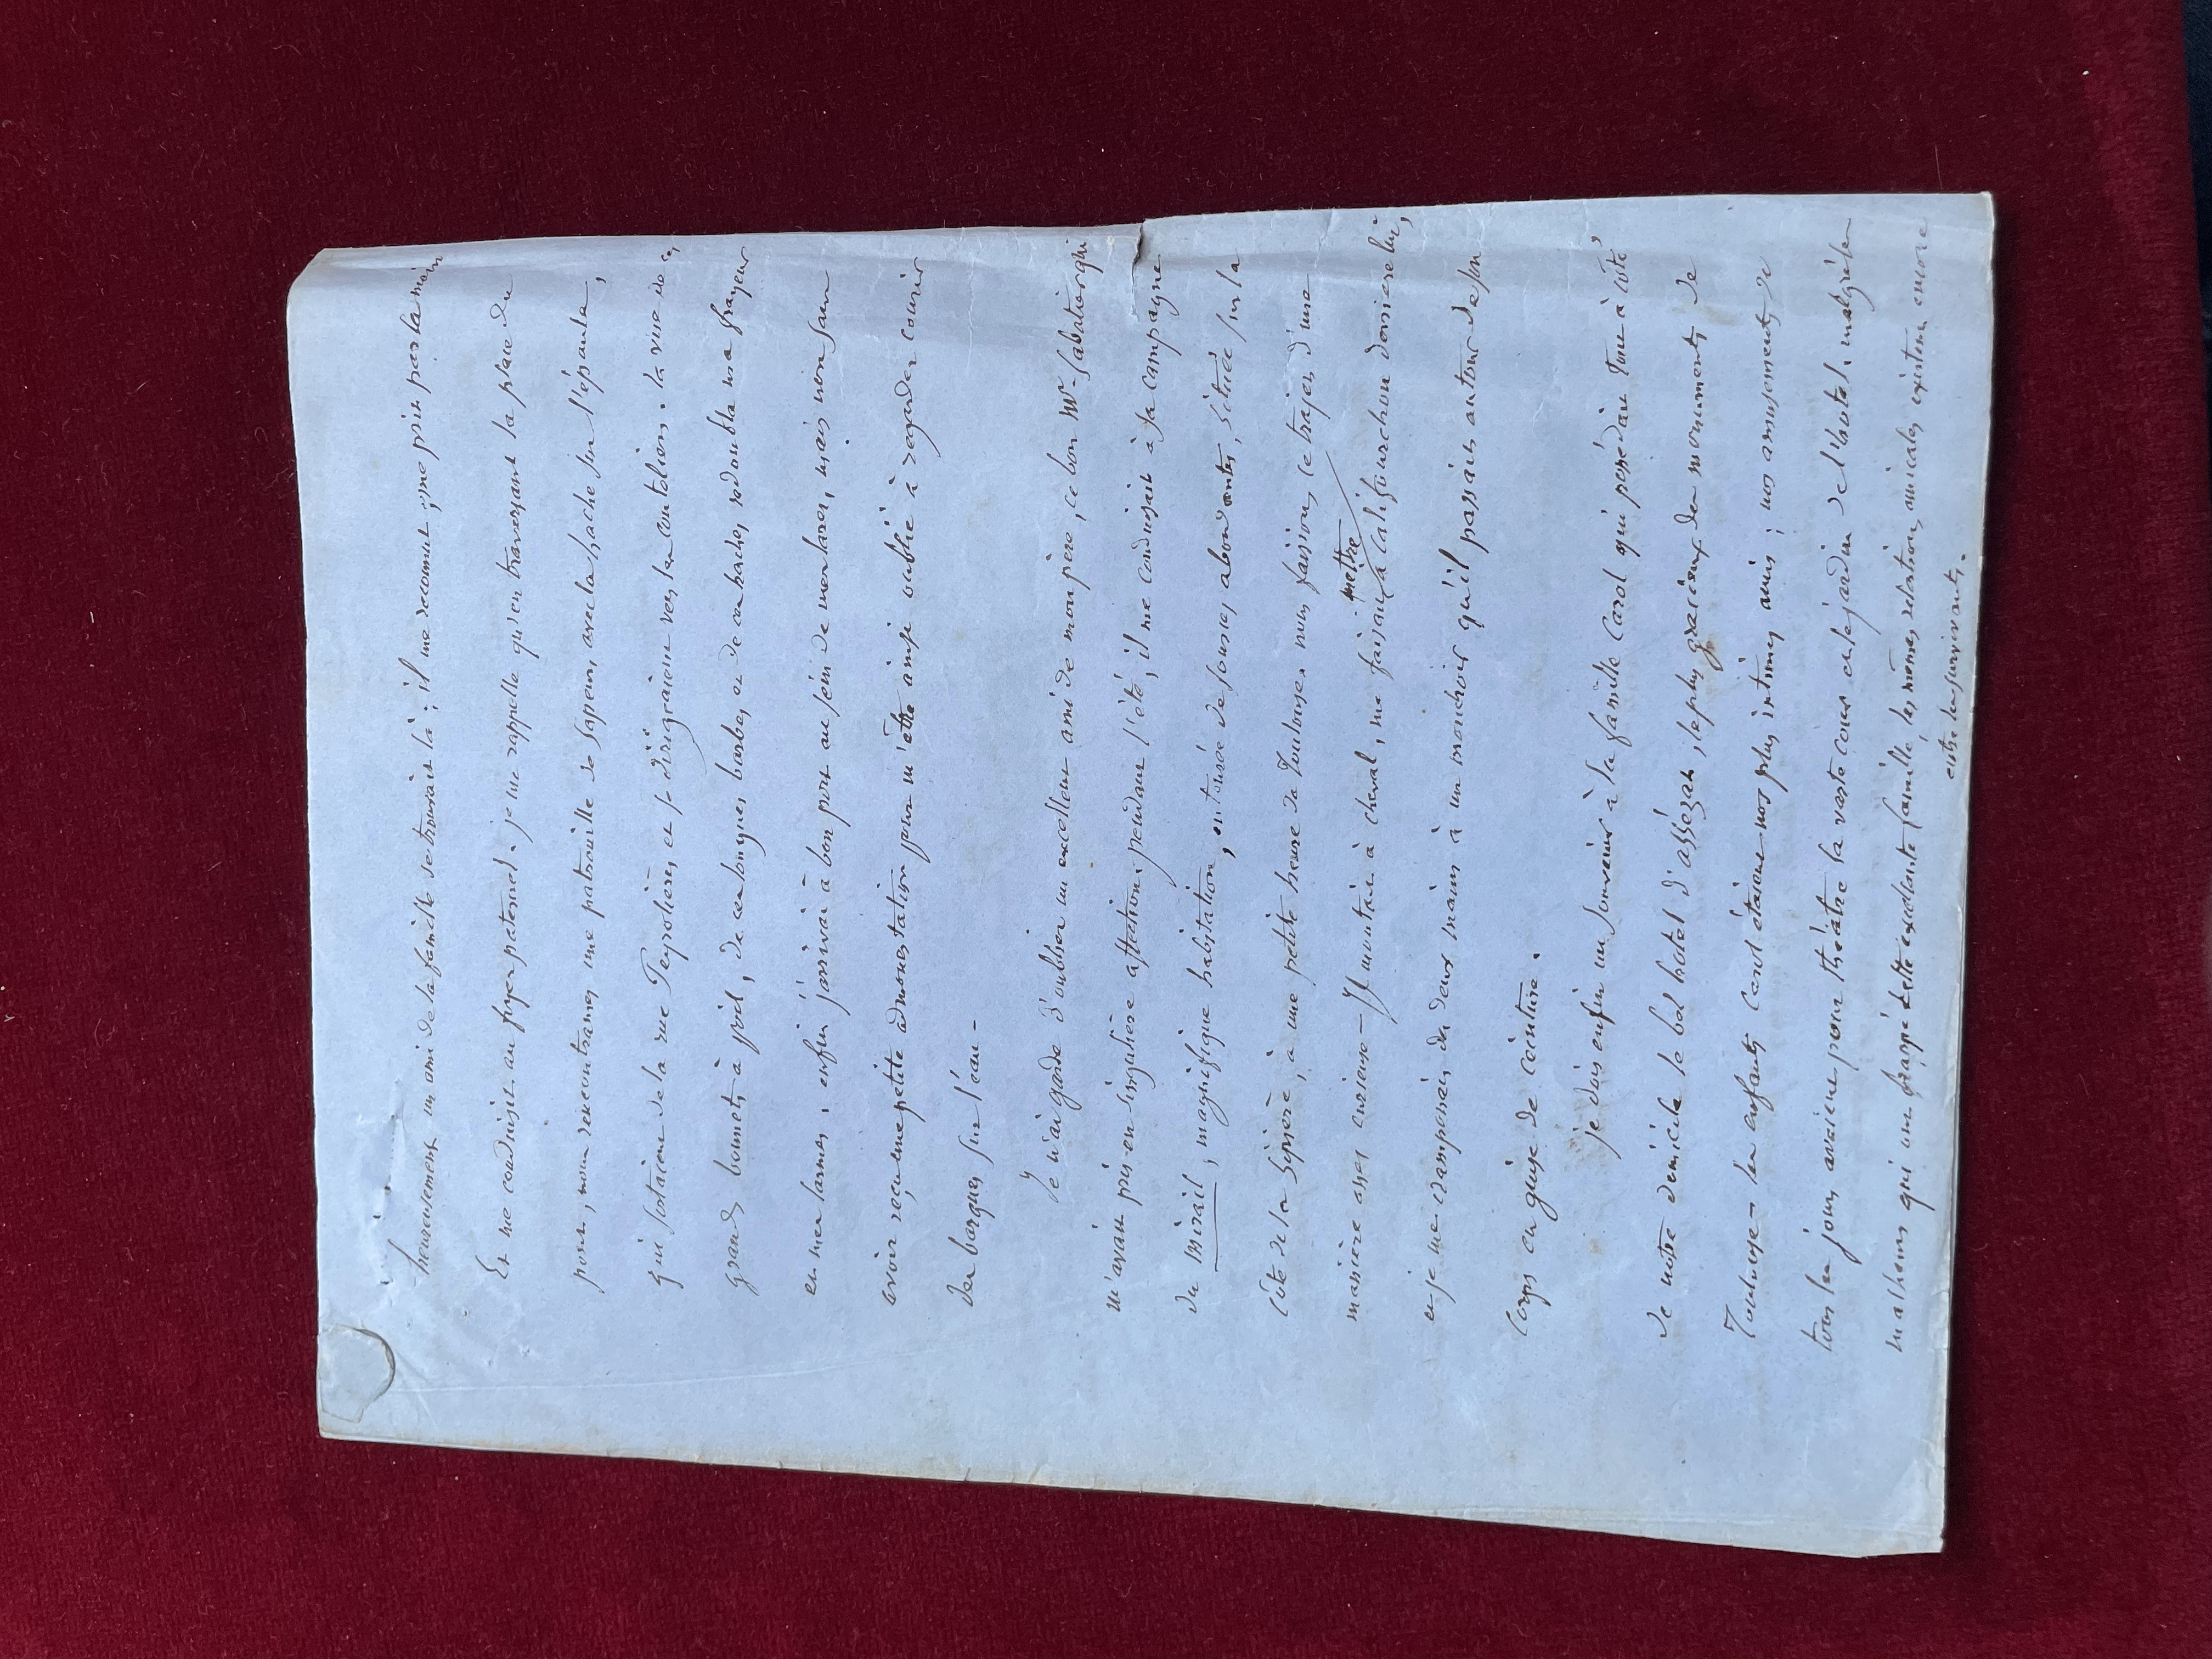 heureusement un ami de la famille se trouvait là ; il me reconnut, me prit par la main
Et me conduisit au foyer paternel. je me rappelle qu'en traversant la place du
pont, nous rencontrames une patrouille de sapeurs avec la hache sur l'épaule,
qui sortaient de la rue Peyrolières et se dirigeaient vers les Couteliers. la vue de ces
grands bonnets à poil, de ces longues barbes et de ces haches redoubla ma frayeur
et mes larmes. enfin j'arrivai à bon port au sein de mes lares, mais non sans
avoir reçu une petite admonestation pour m'être ainsi oublié à regarder courir
des barques sur l'eau -
Je n'ai garde d'oublier un excellent ami de mon père, ce bon Mr Sabatier qui
m'avait pris en singulière affection. pendant l'été, il me conduisait à sa campagne
du Mirail, magnifique habitation, entourée de sources abondantes, située sur la
Côte de la Cipière, à une petite heure de Toulouse. nous faisions ce trajet d'une
manière assez curieuse - Il montait à cheval, me faisait mettre à califourchon derrière lui,
et je me cramponnais des deux mains à un mouchoir qu'il passait autour de son
Corps en guise de ceinture.
je dois enfin un souvenir à la famille Carol qui possédait tout à côté
de notre domicile le bel hotel d'assézat, le plus gracieux des monuments de
Toulouse - les enfants Carol étaient nos plus intimes amis ; nos amusements de
tous les jours avaient pour théâtre la vaste cour et le jardin de l'hotel. malgré les
malheurs qui ont frappé cette excellente famille, les mêmes relations amicales existent encore
entre les survivants.